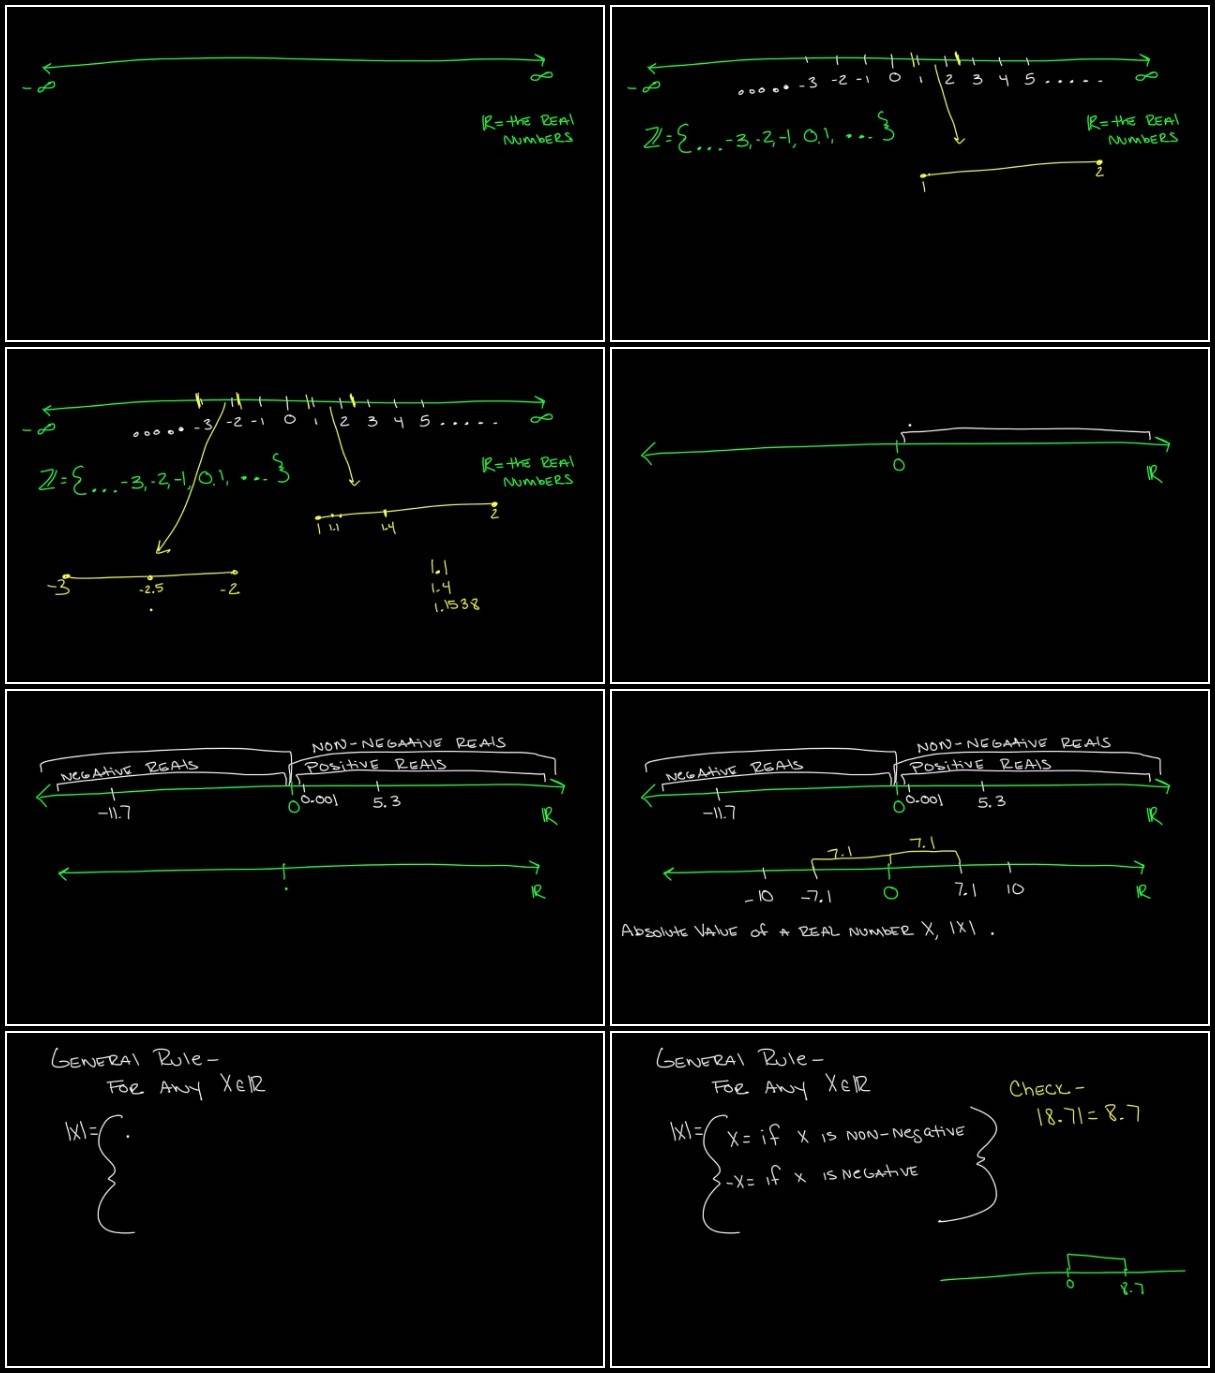 -∞ ∞
ℝ= the REAL
NUMBERS
-∞ ..... -3 -2 -1 0 1 2 3 4 5 ..... ∞
ℤ={...-3,-2,-1,0,1, ...}
ℝ= the REAL
NUMBERS
1 2
-∞ ..... -3 -2 -1 0 1 2 3 4 5 ..... ∞
ℤ={...-3,-2,-1,0,1, ...}
ℝ= the REAL
NUMBERS
1 1.1 1.4 2
-3 -2.5 -2
1.1
1.4
1.1538
0 ℝ
NON-NEGATIVE REALS
NEGATIVE REALS POSITIVE REALS
-11.7 0 0.001 5.3 ℝ
ℝ
NON-NEGATIVE REALS
NEGATIVE REALS POSITIVE REALS
-11.7 0 0.001 5.3 ℝ
7.1 7.1
-10 -7.1 0 7.1 10 ℝ
Absolute Value of a REAL NUMBER X, |X| .
GENERAL Rule-
FOR ANY X∈ℝ
|X|={ .
GENERAL Rule-
FOR ANY X∈ℝ
|X|={ X= if X is NON-Negative }
-X= if X is NEGATIVE
CHECK-
|8.7|= 8.7
0 8.7